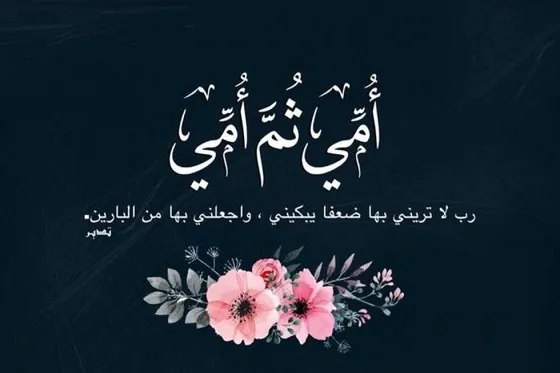 أُمِّي ثُمَّ أُمِّي
رب لا تريني بها ضعفا يبكيني ، واجعلني بها من البارين.